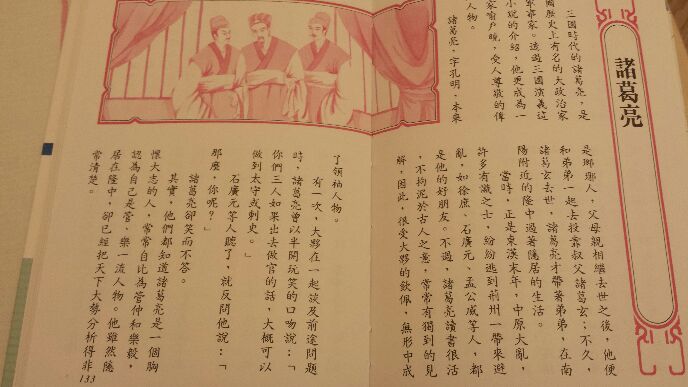 諸葛亮
三國時代的諸葛亮,是
國歷史上有名的大政治家
軍事家。透過三國演義這
小說的介紹,他更成為一
家喻戶曉,受人尊敬的偉
人物。
諸葛亮,字孔明,本來
是瑯琊人,父母親相繼去世之後,他便
和弟弟一起去投靠叔父諸葛玄;不久,
諸葛玄去世,諸葛亮才帶著弟弟,在南
陽附近的隆中過著隱居的生活。
當時,正是東漢末年,中原大亂,
許多有識之士,紛紛逃到荊州一帶來避
亂,如徐庶、石廣元、孟公威等人,都
是他的好朋友。不過,諸葛亮讀書很活
,不拘泥於古人之意,常常有獨到的見
解,因此,很受大夥的欽佩,無形中成
了領袖人物。
有一次,大夥在一起談及前途問題
時,諸葛亮曾以半開玩笑的口吻說:「
你們三人如果出去做官的話,大概可以
做到太守或刺史。」
石廣元等人聽了,就反問他說:「
那麼,你呢?」
諸葛亮卻笑而不答。
其實,他們都知道諸葛亮是一個胸
懷大志的人,常常自比為管仲和樂毅,
認為自己是管、樂一流人物。他雖然隱
居在隆中,卻已經把天下大勢分析得非
常清楚。
133